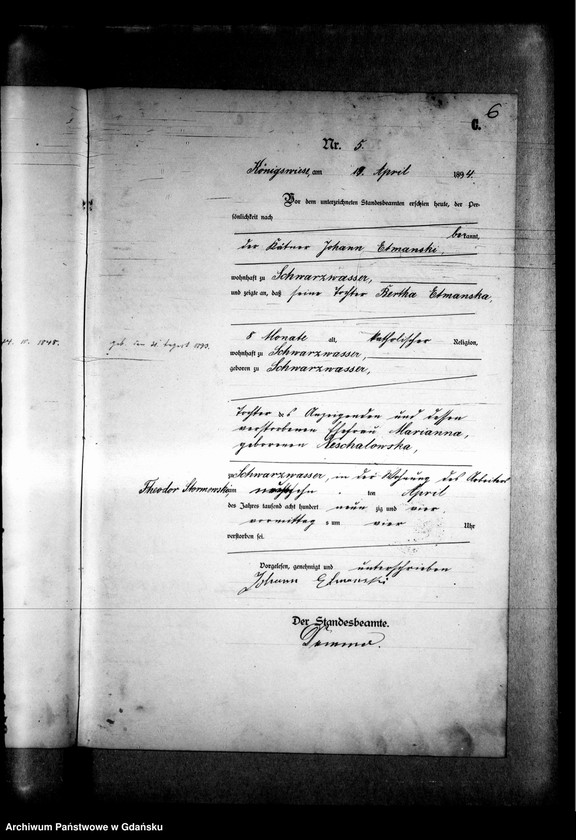 6
C.
Nr. 5.
Königswiese, am 19. April 1894.
Vor dem unterzeichneten Standesbeamten erschien heute, der Per-
sönlichkeit nach
bekannt,
der Kätner Johann Etmanski,
wohnhaft zu Schwarzwasser,
und zeigte an, daß seine Tochter Bertha Etmanska,
geb. am 21. August 1893.
8 Monate alt, katholischer Religion,
wohnhaft zu Schwarzwasser,
geboren zu Schwarzwasser,
Tochter des Anzeigenden und dessen
verstorbenen Ehefrau Marianna,
geborenen
zu Schwarzwasser, in der Wohnung des Arbeiters
Theodor am ten April
des Jahres tausend acht hundert neun zig und vier,
vormittag s um vier Uhr
verstorben sei.
Vorgelesen, genehmigt und unterschrieben
Johann Etmanski
Der Standesbeamte.
Archiwum Państwowe w Gdańsku